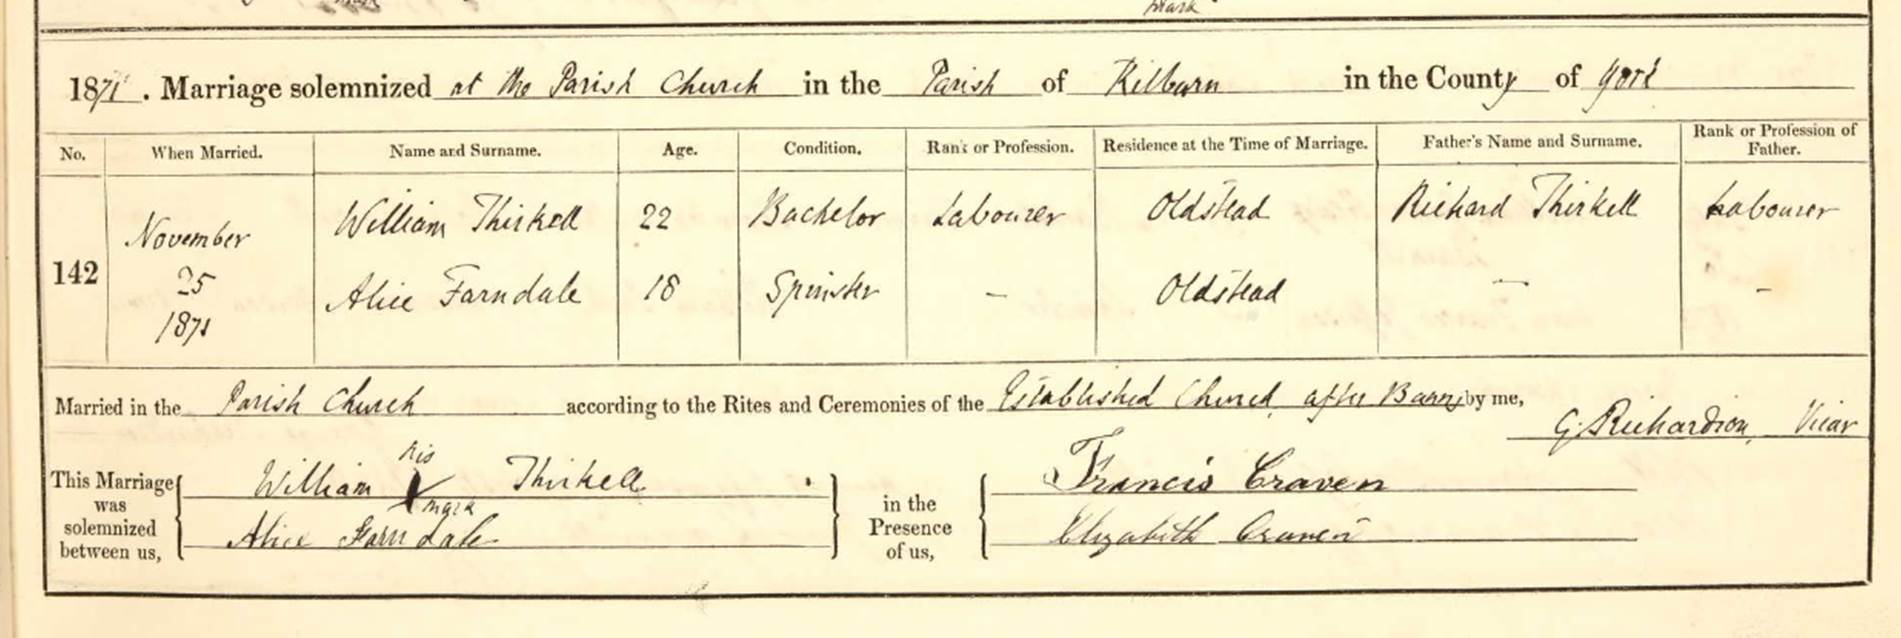 mark
1871. Marriage solemnized at the Parish Church in the Parish of Kilburn in the County of York
No. When Married. Name and Surname. Age. Condition. Rank or Profession. Residence at the Time of Marriage. Father's Name and Surname. Rank or Profession of Father.
142 November 25 1871 William Thirkell 22 Bachelor Labourer Oldstead Richard Thirkell Labourer
Alice Farndale 18 Spinster – Oldstead – –
Married in the Parish Church according to the Rites and Ceremonies of the Established Church, after Banns by me,
G. Richardson, Vicar
This Marriage was solemnized between us, William his X mark Thirkell
Alice Farndale
in the Presence of us, Francis Craven
Elizabeth Craven